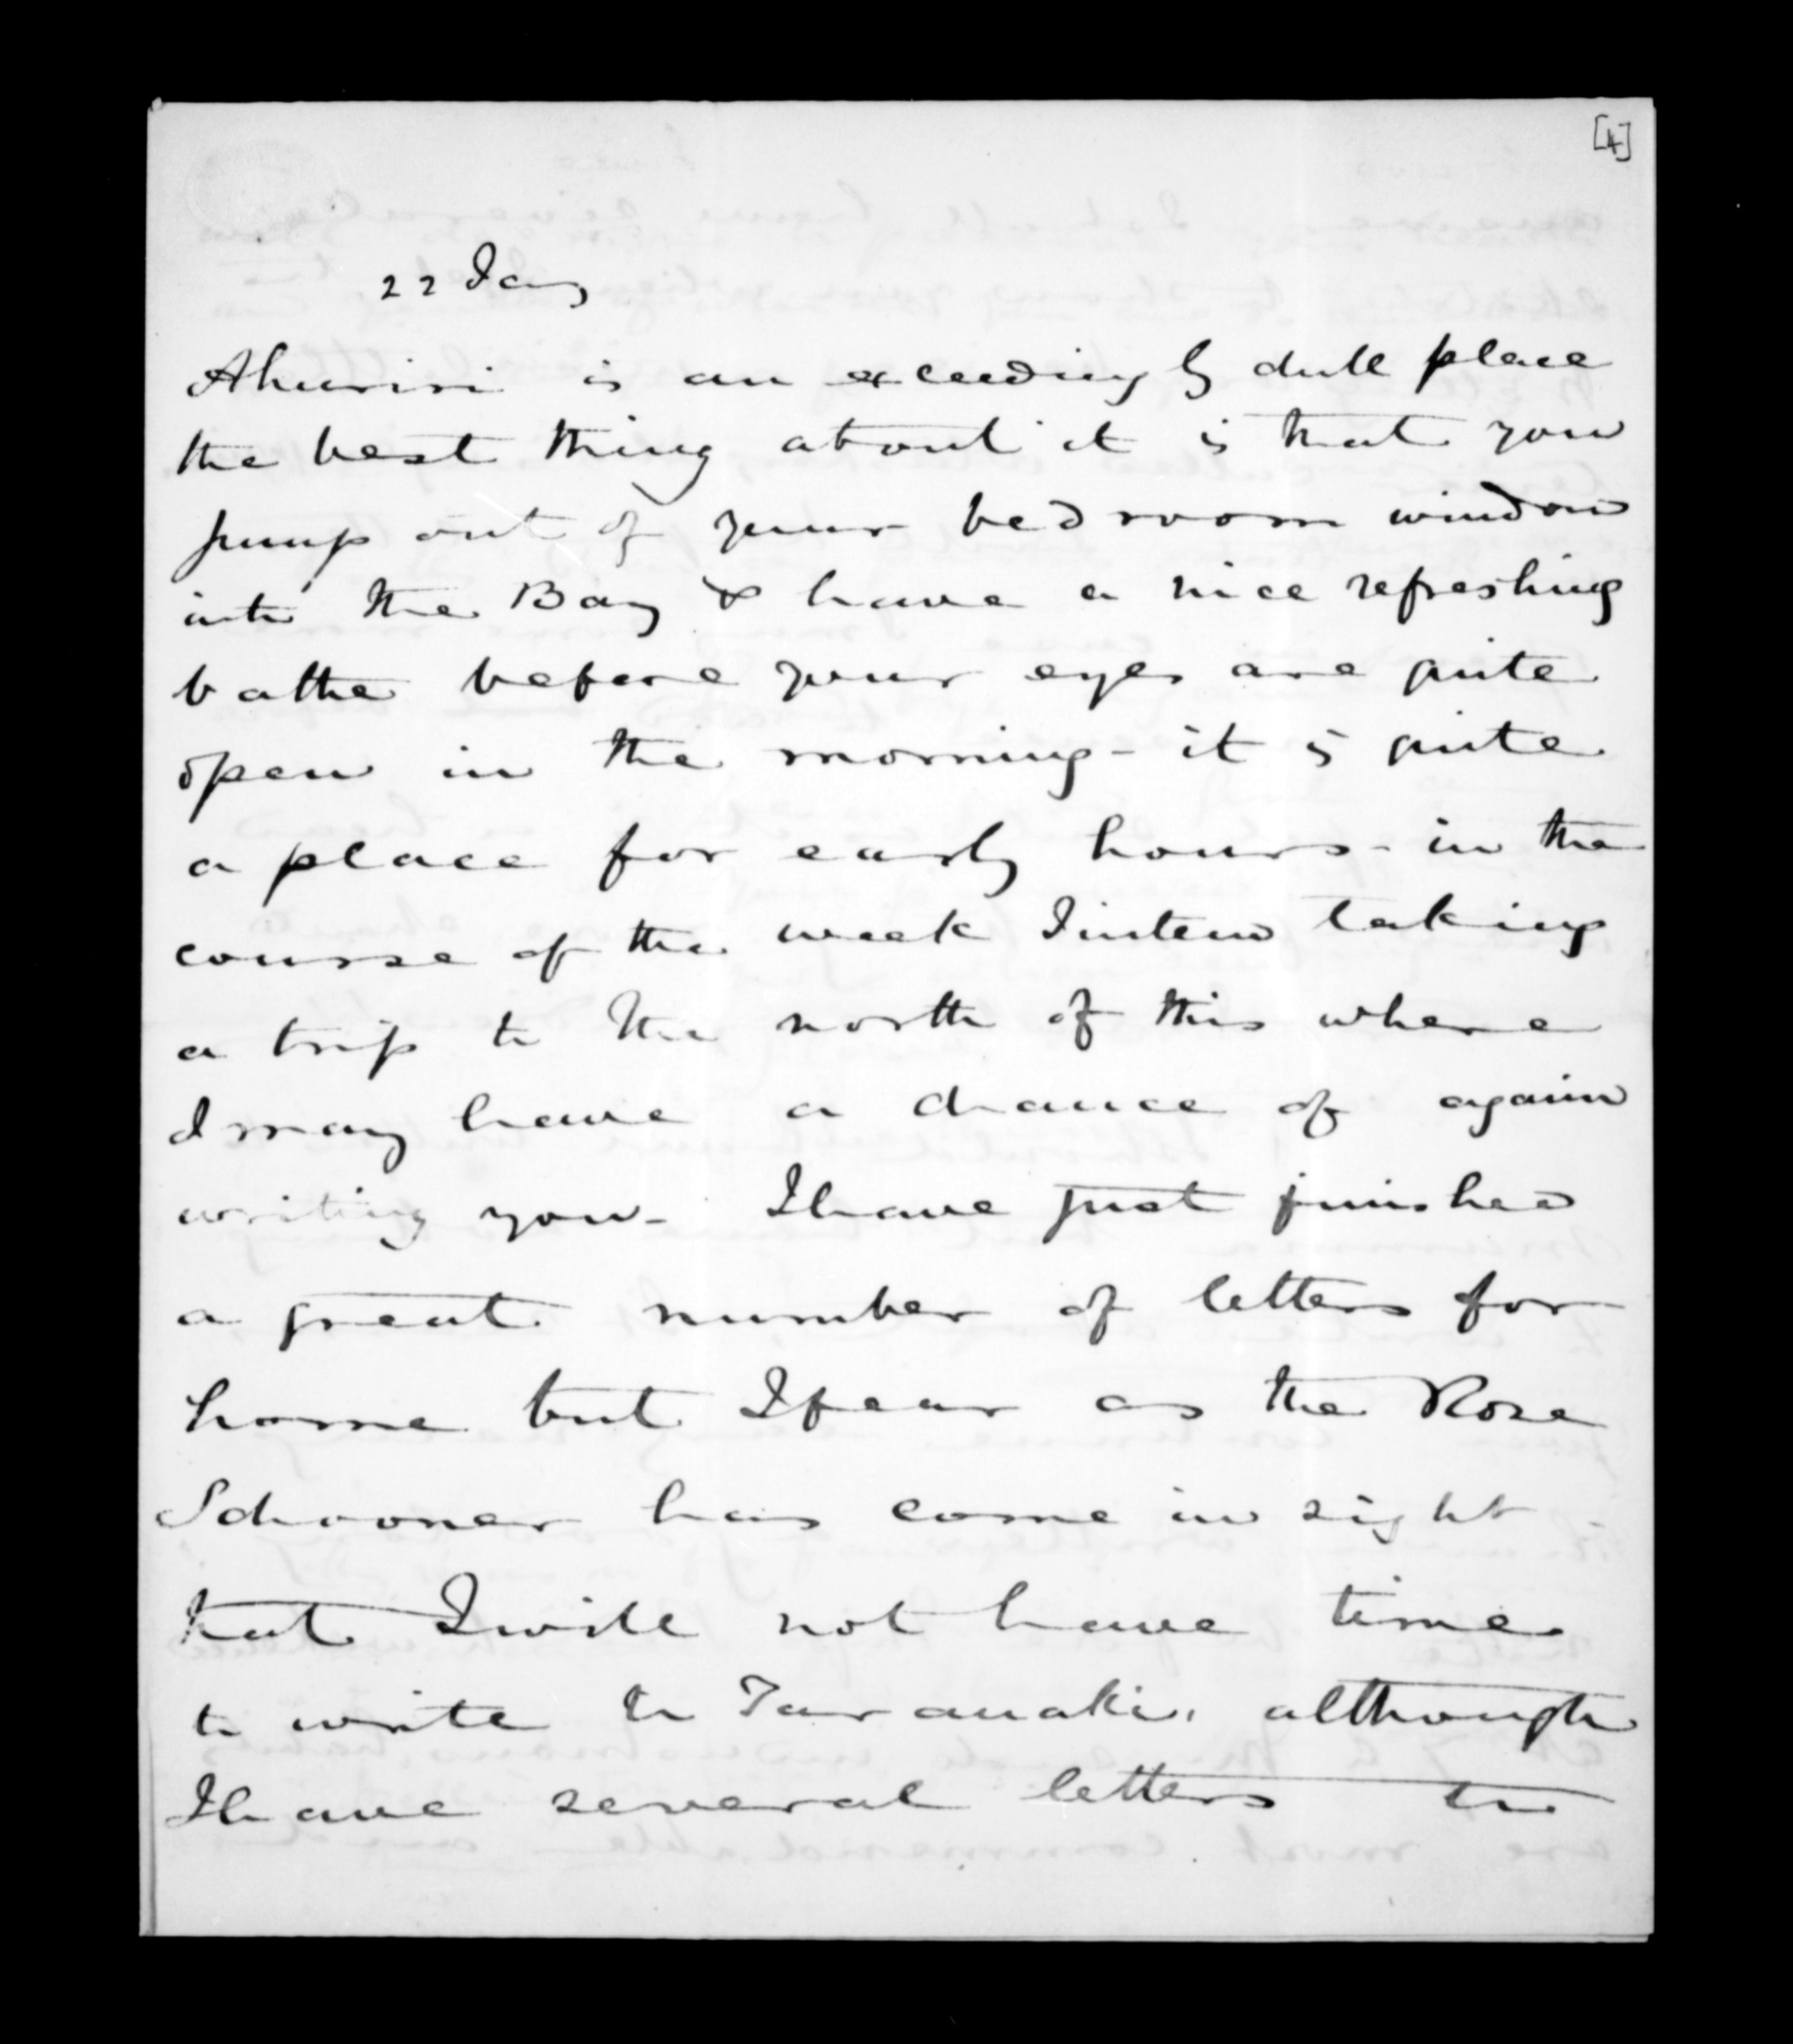 [4]
22 Jany
Ahuriri is an exceedingly dull place
the best thing about it is that you
jump out of your bedroom window
into the Bay & have a nice refreshing
bathe before your eyes are quite
open in the morning - it is quite
a place for early hours - in the
course of the week I intend taking
a trip to the north of this where
I may have a chance of again
writing you - I have just finished
a great number of letters for
home but I fear as the Rose
Schooner has come in sight
that I will not have time
to write to Taranaki. although
I have several letters to